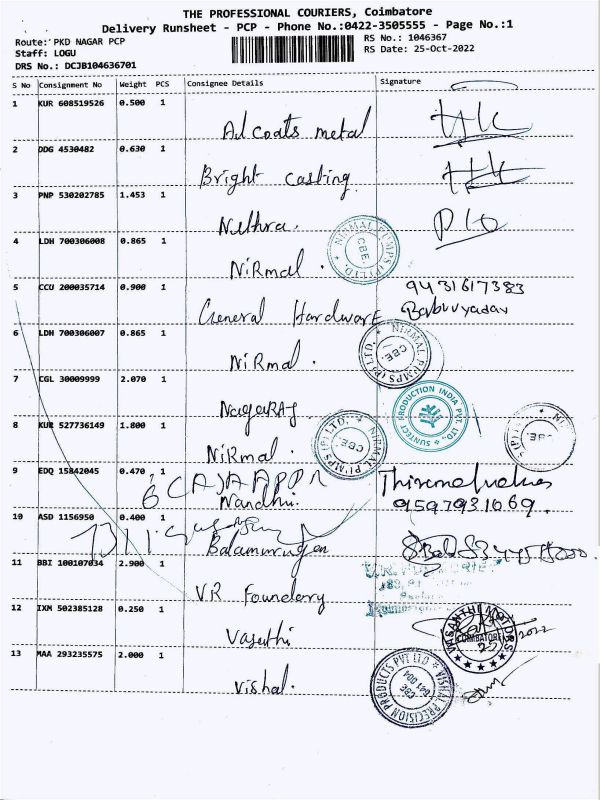 THE PROFESSIONAL COURIERS, Coimbatore
Delivery Runsheet - PCP - Phone No.:0422-3505555 - Page No.:1
Route: PKD NAGAR PCP
Staff: LOGU
DRS No.: DCJB104636701
RS No.: 1046367
RS Date: 25-Oct-2022
S No Consignment No Weight PCS Consignee Details Signature
1 KUR 608519526 0.500 1
Ad coats metal
2 DDG 4530482 0.630 1
Bright casting
3 PNP 530202785 1.453 1
Nethra.
4 LDH 700306008 0.865 1
NiRmal.
NIRMAL PUMPS (P) LTD. CBE.
5 CCU 200035714 0.900 1
General Hardware
9431617383
Babuyadav
6 LDH 700306007 0.865 1
NiRmal.
NIRMAL PUMPS (P) LTD. CBE.
7 CGL 30009999 2.070 1
NagaRAJ
SUNTECT PRODUCTION INDIA PVT. LTD.
8 KUR 527736149 1.800 1
NiRmal.
NIRMAL PUMPS (P) LTD. CBE.
CBE.
9 EDQ 15842045 0.470 1
Nandhi.
9597931069.
10 ASD 1156950 0.400 1
Balamurugan
11 BBI 100107034 2.900 1
VR Foundary
12 IXM 502385128 0.250 1
Vasanthi
VASANTHI MOTORS COIMBATORE
2022
13 MAA 293235575 2.000 1
Vishal.
VISHAL PRECISION PRODUCTS PVT LTD CBE 641 004